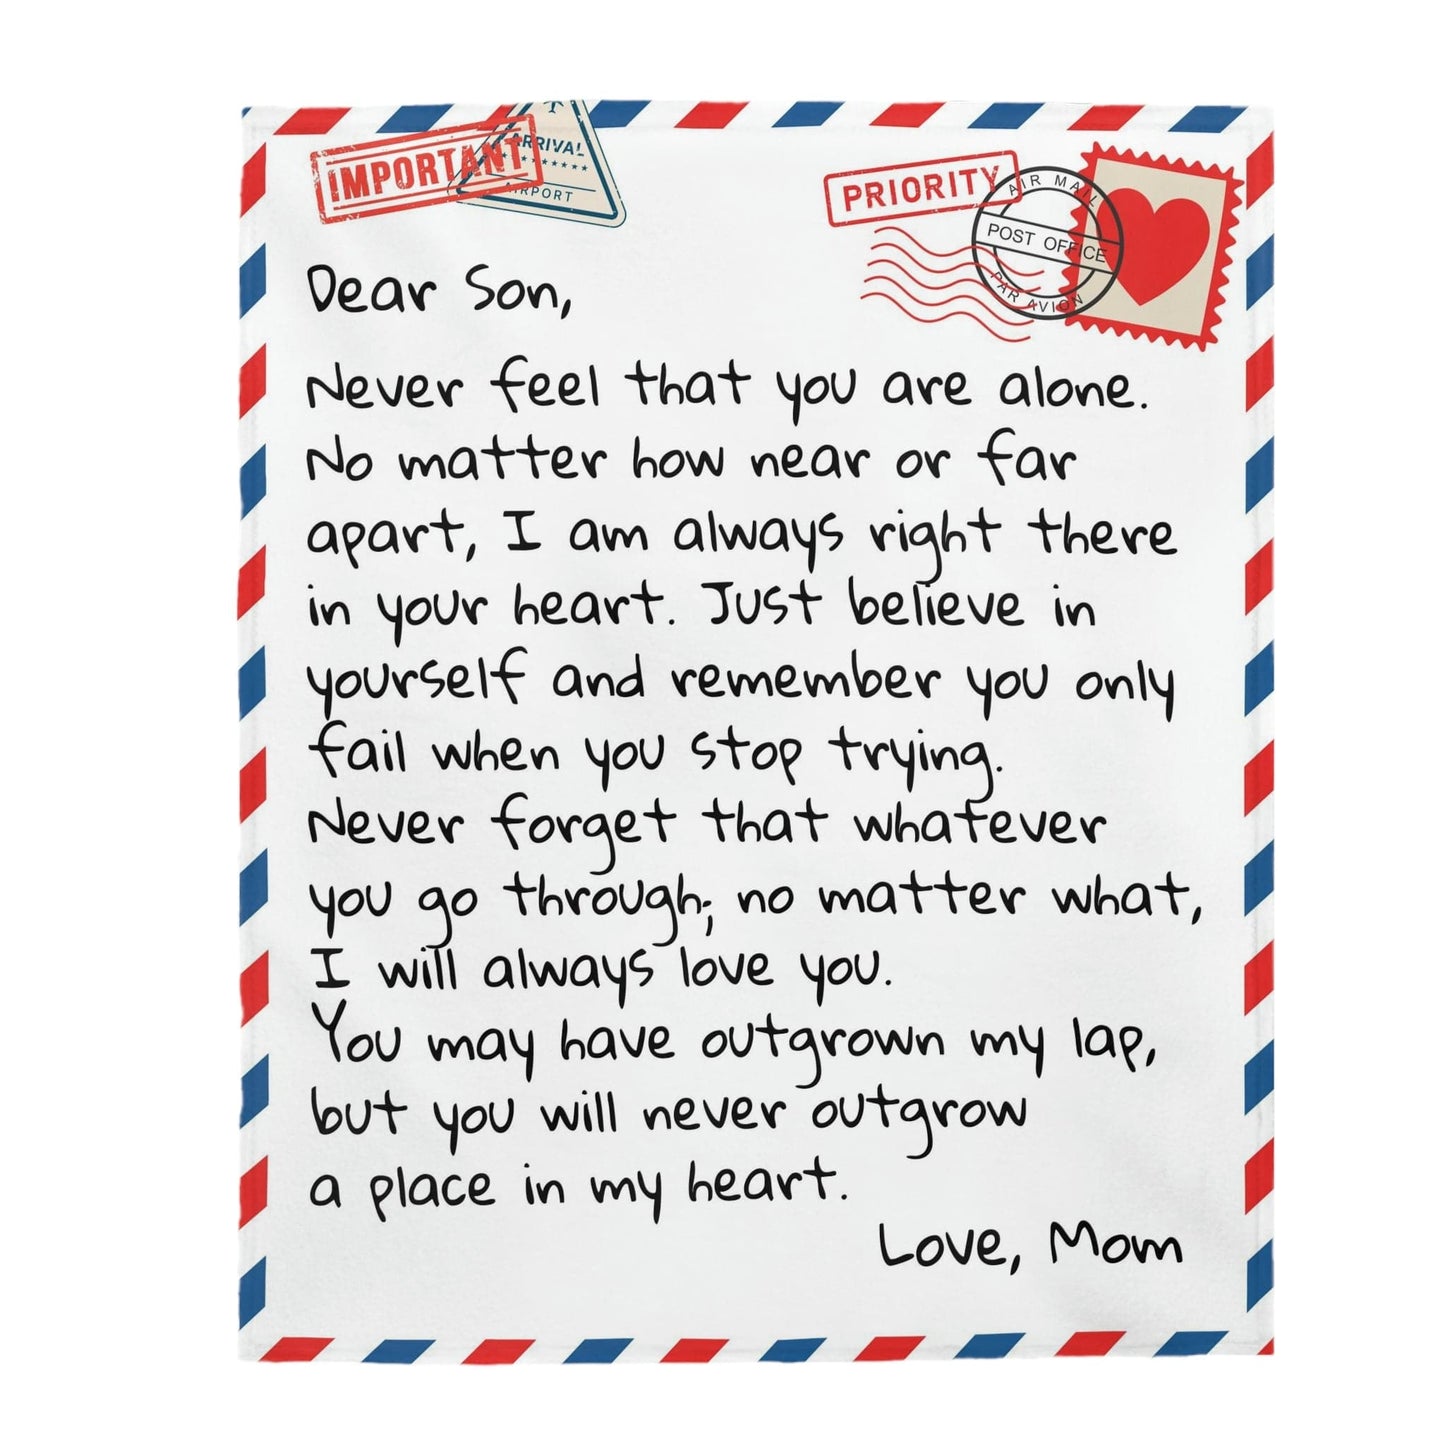 IMPORTANT
ARRIVAL
AIRPORT
PRIORITY
AIR MAIL
POST OFFICE
PAR AVION
Dear Son,
Never feel that you are alone.
No matter how near or far
apart, I am always right there
in your heart. Just believe in
yourself and remember you only
fail when you stop trying.
Never forget that whatever
you go through; no matter what,
I will always love you.
You may have outgrown my lap,
but you will never outgrow
a place in my heart.
Love, Mom